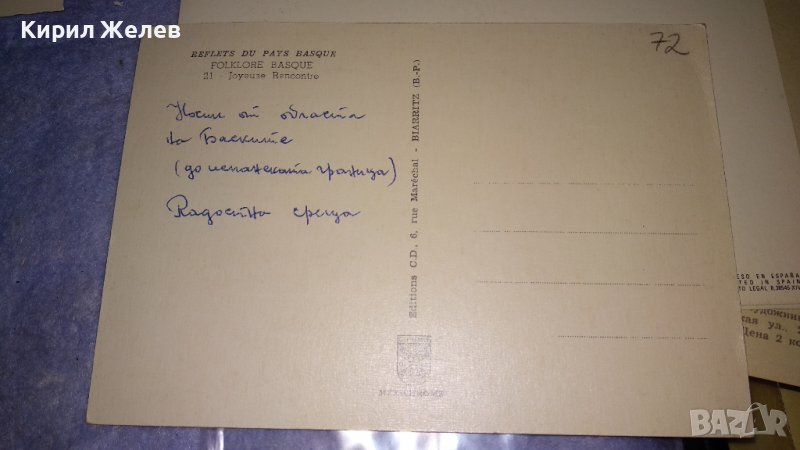 Кирил Желев
72
REFLETS DU PAYS BASQUE
FOLKLORE BASQUE
21 - Joyeuse Rencontre
Носии от областта
на Баските
(до испанската граница)
Радостна среща
Editions C.D., 6, rue Maréchal - BIARRITZ (B.-P.)
MEXICHROME
ESO EN ESPAÑA
TED IN SPAIN
TO LEGAL B.
ая ул.,
Цена 2 ко
BAZAR